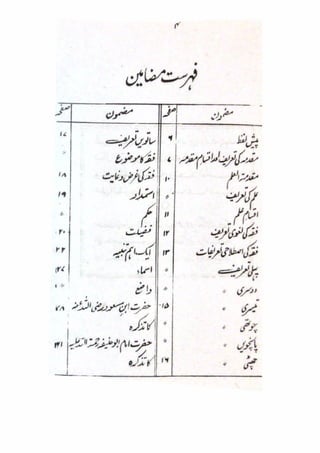 ۴
فہرست مضامین
مضمون صفحہ
پیش لفظ ۶
مقدمہ کی تعریف اور اقسام مقدمہ ۷
مقدمۃ العلم ۱۰
علم کی تعریف "
اقسام علم ۱۱
فقہ کی لغوی تعریف ۱۲
فقہ کی اصطلاحی تعریفات ۱۳
پہلی تعریف "
دوسری "
تیسری ۱۵
چوتھی "
پانچویں "
چھٹی ۱۶
مضمون صفحہ
ساتویں تعریف ۱۷
فقہ کا موضوع "
فقہ کی غرض و غایت ۱۸
استمداد ۱۹
حکم "
فقہیات ۲۰
ایک اہم تنبیہ ۲۲
اسماء
واضع "
حضرت ابن مسعود رضی اللہ عنہ ۲۸
کا تذکرہ
حضرت امام ابو حنیفہ رحمۃ اللہ علیہ
کا تذکرہ